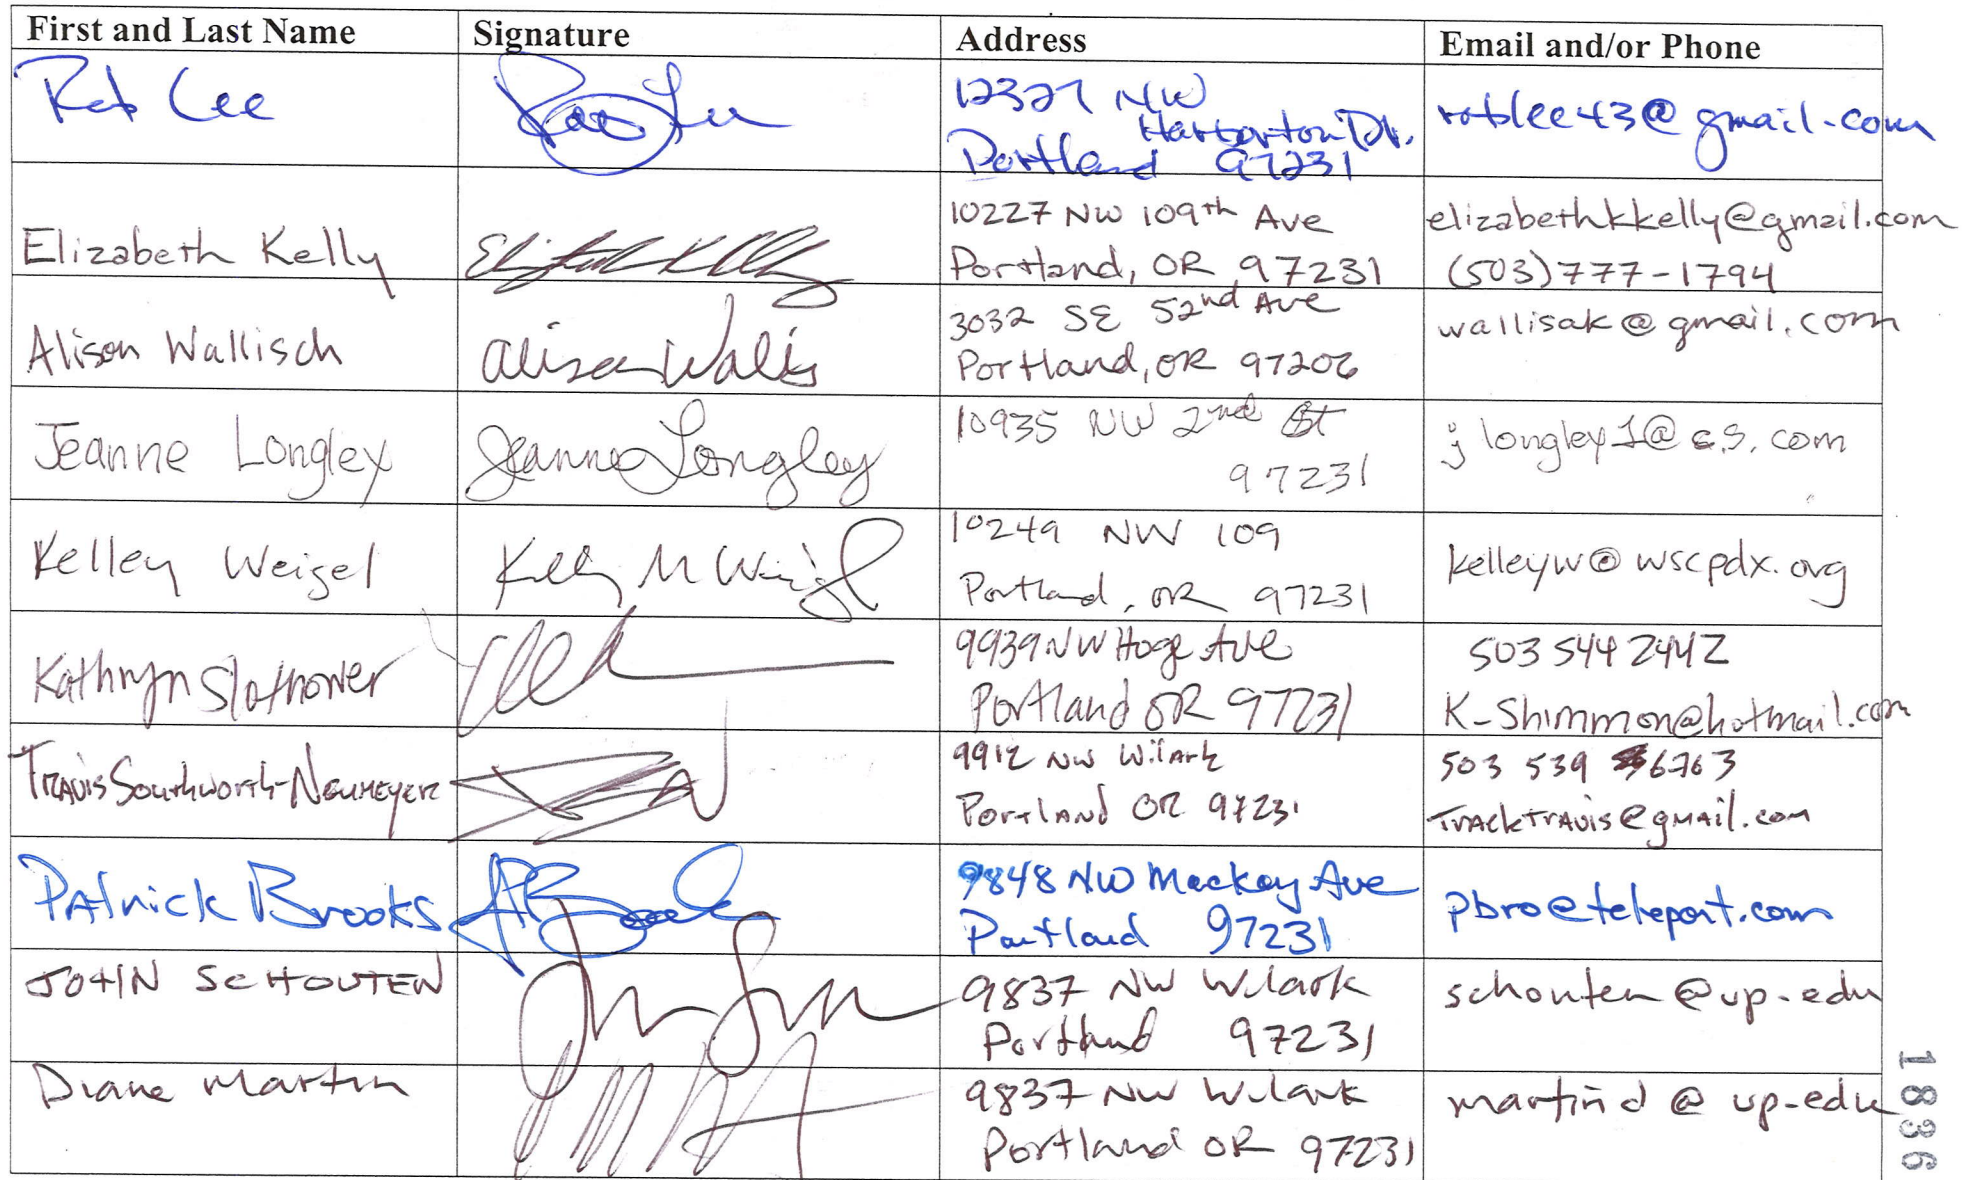 First and Last Name Signature Address Email and/or Phone
Rob Lee Rob Lee 12327 NW Harborton Dr. Portland 97231 roblee43@gmail.com
Elizabeth Kelly Elizabeth Kelly 10227 NW 109th Ave Portland, OR 97231 elizabethkkelly@gmail.com (503)777-1794
Alison Wallisch 3032 SE 52nd Ave Portland, OR 97206 wallisak@gmail.com
Jeanne Longley Jeanne Longley 10935 NW 2nd St 97231 jlongley1@cs.com
Kelley Weigel Kelley M Weigel 10249 NW 109 Portland, OR 97231 kelleyw@wscpdx.org
Kathryn Slothower 9939 NW Hoge Ave Portland OR 97231 503 544 2442 K-Shimmon@hotmail.com
Travis Southworth-Neumeyer 9912 NW Wilark Portland OR 97231 503 539 6763 Tracktravis@gmail.com
Patrick Brooks 9848 NW Mackay Ave Portland 97231 pbro@teleport.com
JOHN SCHOUTEN 9837 NW Wilark Portland 97231 schouten@up.edu
Diane Martin 9837 NW Wilark Portland OR 97231 martind@up.edu
1836